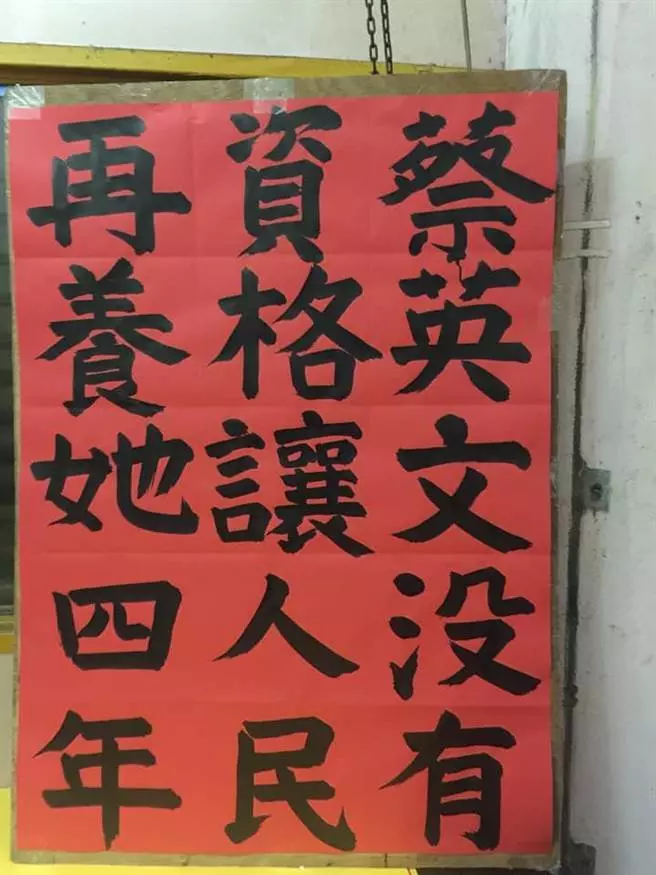 蔡英文没有
資格讓人民
再養她四年